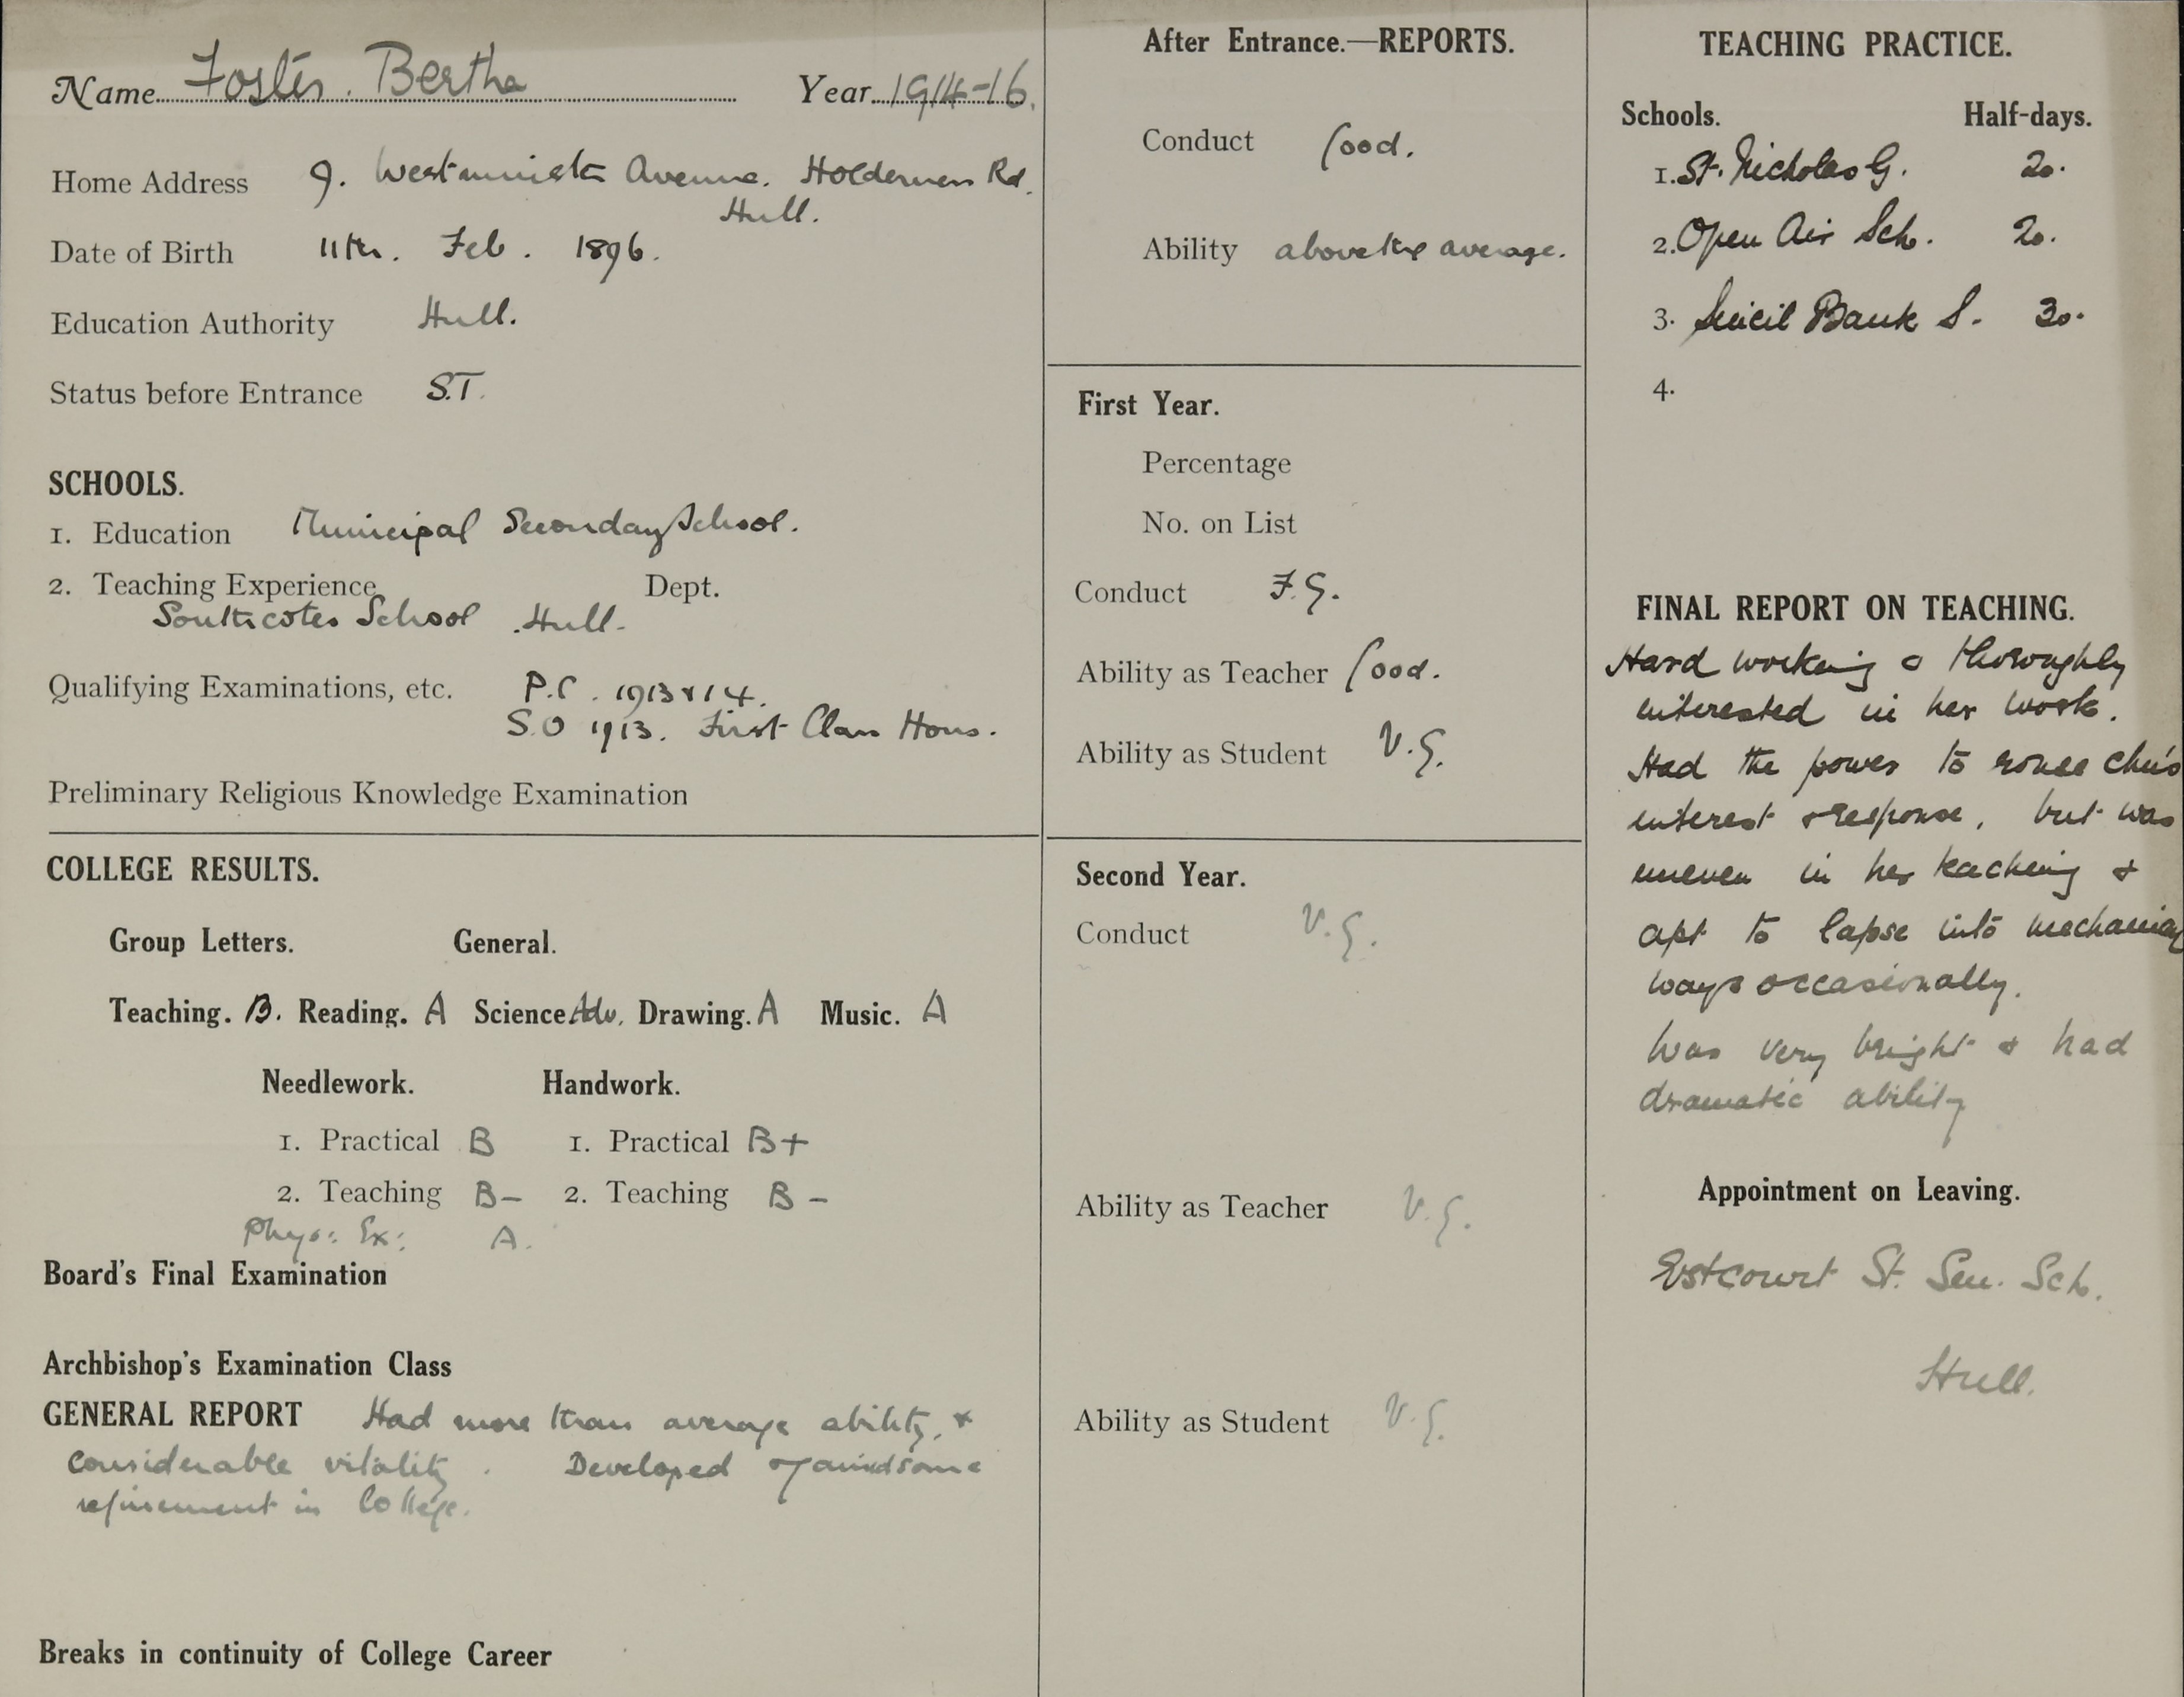 Name Foster. Bertha Year 1914-16.
Home Address 9. Westminster Avenue. Holderness Rd.
Hull.
Date of Birth 11th. Feb. 1896.
Education Authority Hull.
Status before Entrance S.T.
SCHOOLS.
1. Education Municipal Secondary School.
2. Teaching Experience Dept.
Southcotes School. Hull.
Qualifying Examinations, etc. P.C. 1913 & 14.
S.O 1913. First Class Hons.
Preliminary Religious Knowledge Examination
COLLEGE RESULTS.
Group Letters. General.
Teaching. B. Reading. A Science Adv. Drawing. A Music. A
Needlework. Handwork.
1. Practical B 1. Practical B+
2. Teaching B- 2. Teaching B -
Phys: Ex: A.
Board's Final Examination
Archbishop's Examination Class
GENERAL REPORT Had more than average ability, &
considerable vitality. Developed & gained some
refinement in College.
Breaks in continuity of College Career
After Entrance.—REPORTS.
Conduct Good.
Ability above the average.
First Year.
Percentage
No. on List
Conduct F.G.
Ability as Teacher Good.
Ability as Student V.G.
Second Year.
Conduct V.G.
Ability as Teacher V.G.
Ability as Student V.G.
TEACHING PRACTICE.
Schools. Half-days.
1. St. Nicholas G. 20.
2. Open Air Sch. 20.
3. Sincil Bank S. 30.
4.
FINAL REPORT ON TEACHING.
Hard working & thoroughly
interested in her work.
Had the power to rouse chn's
interest & response, but was
uneven in her teaching &
apt to lapse into mechanical
ways occasionally.
Was very bright & had
dramatic ability
Appointment on Leaving.
Estcourt St. Sen. Sch.
Hull.